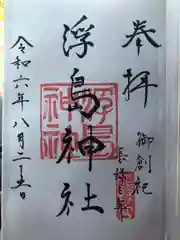 奉拝
御創祀
浮島神社
浮島神社
令和六年八月二十五日